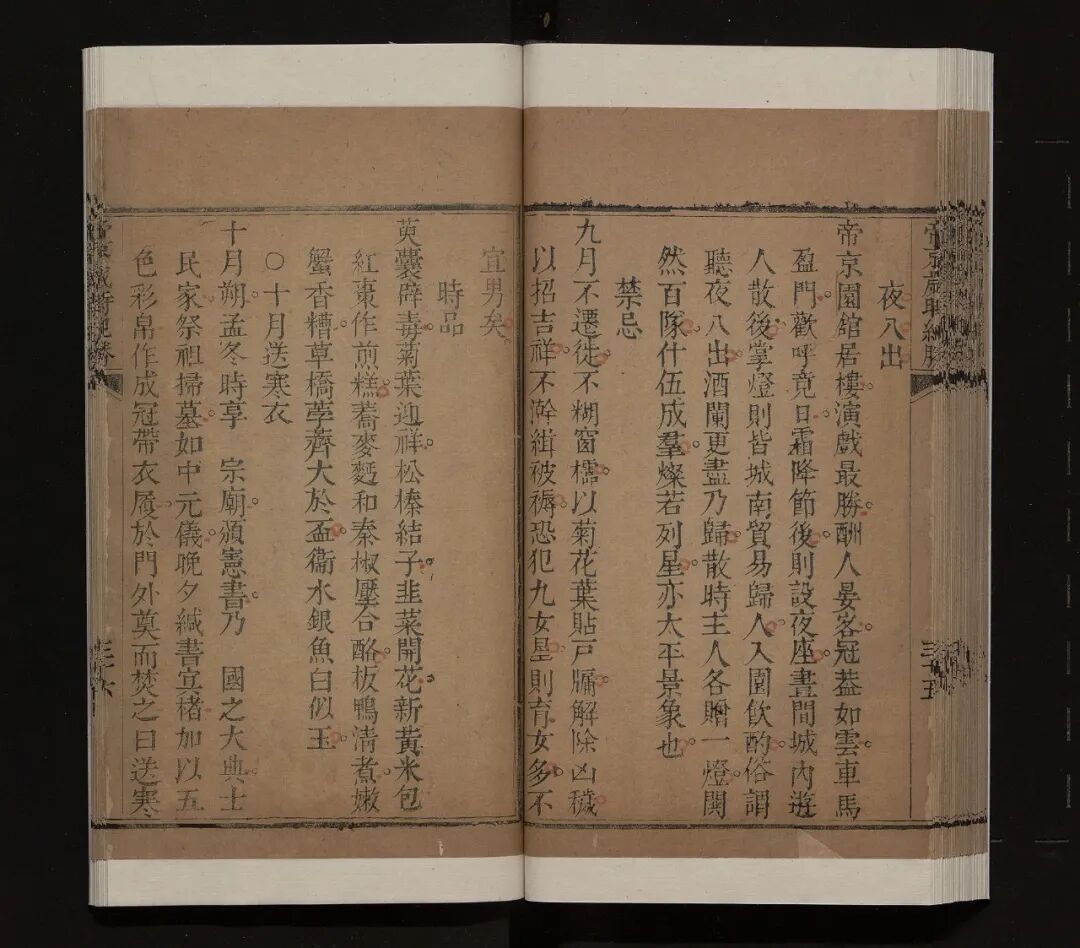 夜八出
帝京園館居樓演戲最勝酬人宴客冠葢如雲車馬
盈門歡呼竟日霜降節後則設夜座晝間城内遊
人散後掌燈則皆城南貿易歸人入園飲酌俗謂
聽夜八出酒闌更盡乃歸散時主人各贈一燈閧
然百隊什伍成羣燦若列星亦太平景象也
禁忌
九月不遷徙不糊窗櫺以菊花葉貼戸牖解除凶穢
以招吉祥不澣緝被褥恐犯九女星則育女多不
宜男矣
時品
萸囊辟毒菊葉迎祥松榛結子韭菜開花新黃米包
紅棗作煎糕蕎麥麫和秦椒壓合酪板鴨清煮嫩
蟹香糟草橋荸薺大於盃衞水銀魚白似玉
○十月送寒衣
十月朔孟冬時享　宗廟頒憲書乃　國之大典士
民家祭祖掃墓如中元儀晚夕緘書冥楮加以五
色彩帛作成冠帶衣履於門外奠而焚之曰送寒